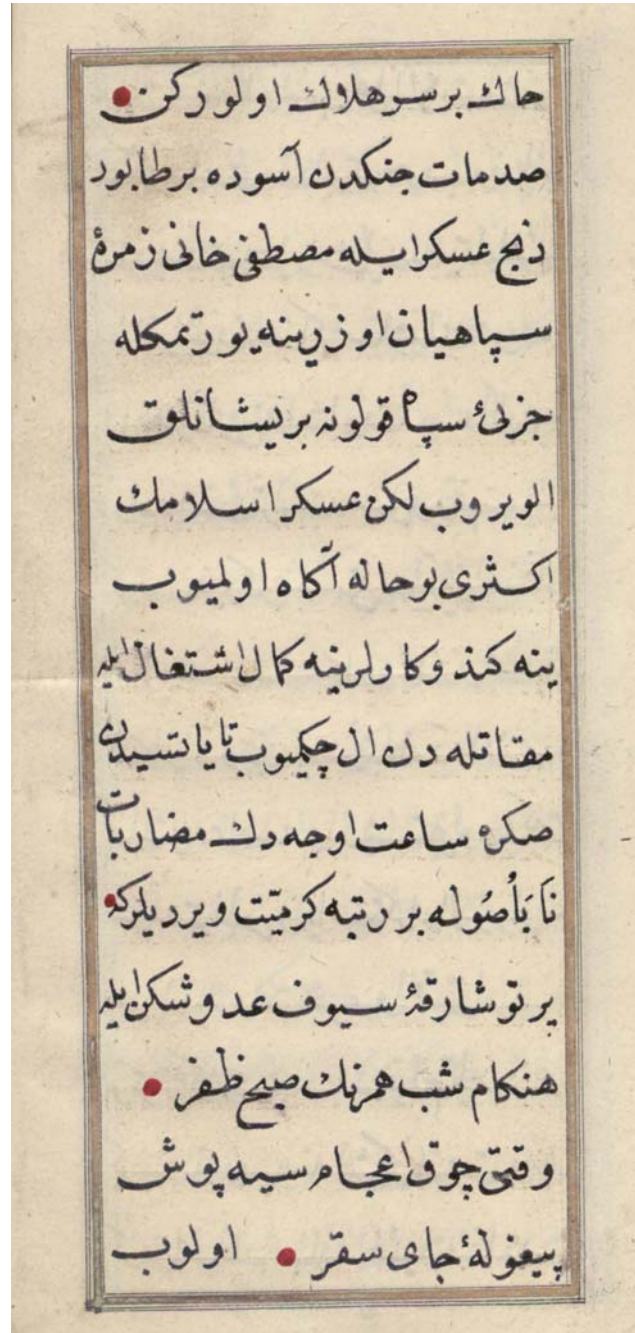 حاك برسر هلاك اولوركن
صدمات جنكدن آسوده برطابور
دنج عسكر ايله مصطفى خانى زمرهٔ
سپاهيان اوزرينه يورتمكله
جزئى سپاه قولونه پريشانلق
الويروب لكن عسكر اسلامك
اكثرى بوحاله آكاه اولميوب
ينه كند وكارلرينه كمال اشتغال ايله
مقاتله دن ال چكميوب تا ياتسيدن
صكره ساعت اوجه دك مضاربات
نَابَأصُوله بر رتبه كرميّت ويرديلركه
پرتو شارقهٔ سيوف عدوشكن ايله
هنكام شب همرنك صبح ظفر
وقتى چوق اعجام سيه پوش
پيغولهٔ جاى سقر اولوب